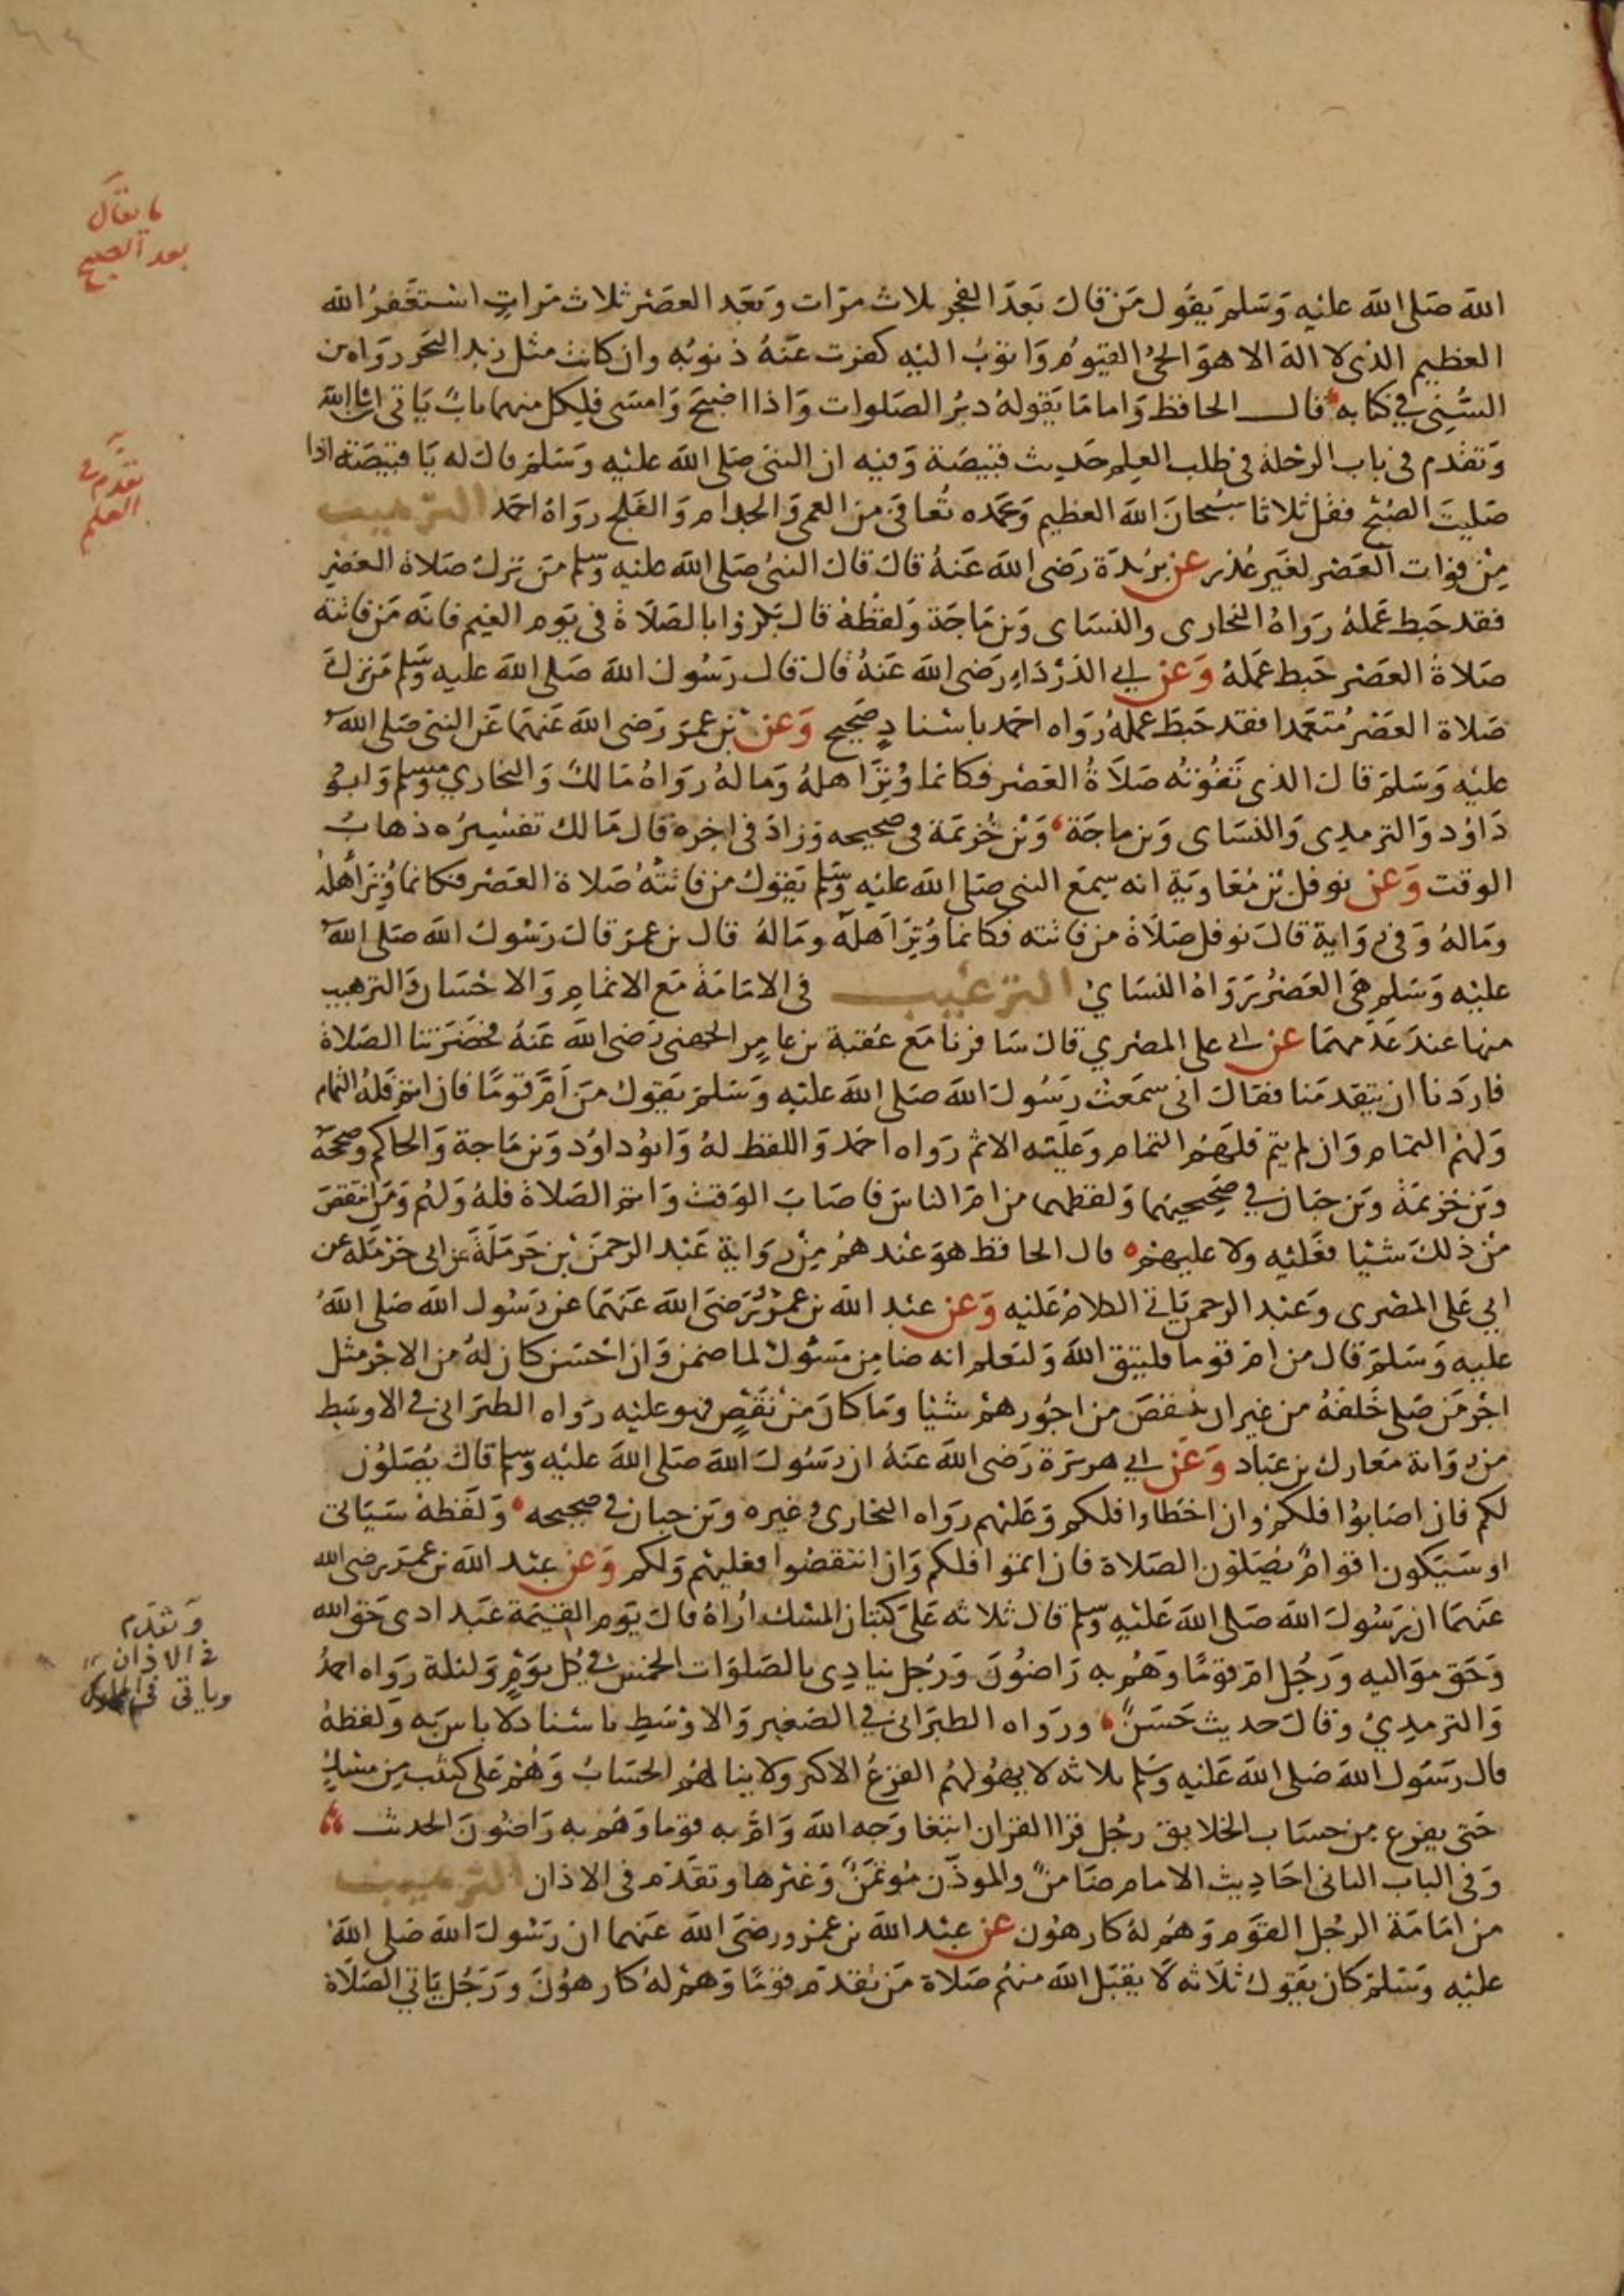 ما يقال
بعد الصبح
الله صلى الله عليه وسلم يقول من قال بعد الفجر ثلاث مرات وبعد العصر ثلاث مرات استغفر الله
العظيم الذي لا اله الا هو الحي القيوم واتوب اليه كفرت عنه ذنوبه وان كانت مثل زبد البحر رواه بن
السني في كتابه قال الحافظ واما ما يقوله دبر الصلوات واذا اصبح وامسى فلكل منهما باب ياتي ان شا الله
وتقدم في باب الرحلة في طلب العلم حديث قبيصة وفيه ان النبي صلى الله عليه وسلم قال له يا قبيصة اذا
تقدم في
العلم
صليت الصبح فقل ثلاثا سبحان الله العظيم وبحمده تعافى من العمى والجدام والفلج رواه احمد الترهيب
من فوات العصر لغير عذر عن بريدة رضي الله عنه قال قال النبي صلى الله عليه وسلم من ترك صلاة العصر
فقد حبط عمله رواه البخاري والنساى وبن ماجة ولفظه قال بكروا بالصلاة في يوم الغيم فانه من فاتته
صلاة العصر حبط عمله وعن ابي الدرداء رضي الله عنه قال قال رسول الله صلى الله عليه وسلم من ترك
صلاة العصر متعمدا فقد حبط عمله رواه احمد باسناد صحيح وعن بن عمر رضي الله عنهما عن النبي صلى الله
عليه وسلم قال الذي تفوته صلاة العصر فكانما وتر اهله وماله رواه مالك والبخاري ومسلم وابو
داود والترمدى والنساى وبن ماجة وبن خزيمة في صحيحه وزاد في اخره قال مالك تفسيره ذهاب
الوقت وعن نوفل بن معاوية انه سمع النبي صلى الله عليه وسلم يقول من فاتته صلاة العصر فكانما وتر اهله
وماله وفي رواية قال نوفل صلاة من فاتته فكانما وتر اهله وماله قال بن عمر قال رسول الله صلى الله
عليه وسلم هي العصر رواه النساي الترغيب في الامامة مع الاتمام والاحسان والترهيب
منها عند عدمهما عن ابي على المصري قال سافرنا مع عقبة بن عامر الجهني رضي الله عنه فحضرتنا الصلاة
فاردنا ان يتقدمنا فقال اني سمعت رسول الله صلى الله عليه وسلم يقول من أم قوما فان اتم فله التمام
ولهم التمام وان لم يتم فلهم التمام وعليه الاثم رواه احمد واللفظ له وابو داود وبن ماجة والحاكم وصححه
وبن خزيمة وبن حبان في صحيحيهما ولفظهما من ام الناس فاصاب الوقت واتم الصلاة فله ولهم ومن انتقص
من ذلك شيا فعليه ولا عليهم قال الحافظ هو عندهم من رواية عبد الرحمن بن حرملة عن ابي حرملة عن
ابي على المصرى وعبد الرحمن ياتي الكلام عليه وعن عبد الله بن عمر رضي الله عنهما عن رسول الله صلى الله
عليه وسلم قال من ام قوما فليتق الله وليعلم انه ضامن مسؤول لما ضمن وان احسن كان له من الاجر مثل
اجر من صلى خلفه من غير ان ينقص من اجورهم شيا وما كان من نقص فهو عليه رواه الطبراني في الاوسط
من رواية معارك بن عباد وعن ابي هريرة رضي الله عنه ان رسول الله صلى الله عليه وسلم قال يصلون
لكم فان اصابوا فلكم وان اخطاوا فلكم وعليهم رواه البخاري وغيره وبن حبان في صحيحه ولفظه سياتي
او سيكون اقوام يصلون الصلاة فان اتموا فلكم وان انتقصوا فعليهم ولكم وعن عبد الله بن عمر رضي الله
عنهما ان رسول الله صلى الله عليه وسلم قال ثلاثه على كثبان المسك اراه قال يوم القيمة عبد ادى حق الله
وتقدم
في الاذان
وياتي في
وحق مواليه ورجل ام قوما وهم به راضون ورجل ينادي بالصلوات الخمس في كل يوم وليلة رواه احمد
والترمدي وقال حديث حسن ورواه الطبراني في الصغير والاوسط باسناد لا باس به ولفظه
قال رسول الله صلى الله عليه وسلم ثلاثه لا يهولهم الفزع الاكبر ولا ينالهم الحساب وهم على كثب من مسك
حتى يفرع من حساب الخلايق رجل قرا القران ابتغا وجه الله وام به قوما وهم به راضون الحديث
وفي الباب الثاني احاديث الامام ضامن والموذن موتمن وغيرها وتقدم في الاذان الترهيب
من امامة الرجل القوم وهم له كارهون عن عبد الله بن عمرو رضي الله عنهما ان رسول الله صلى الله
عليه وسلم كان يقول ثلاثه لا يقبل الله منهم صلاة من تقدم قوما وهم له كارهون ورجل ياتي الصلاة